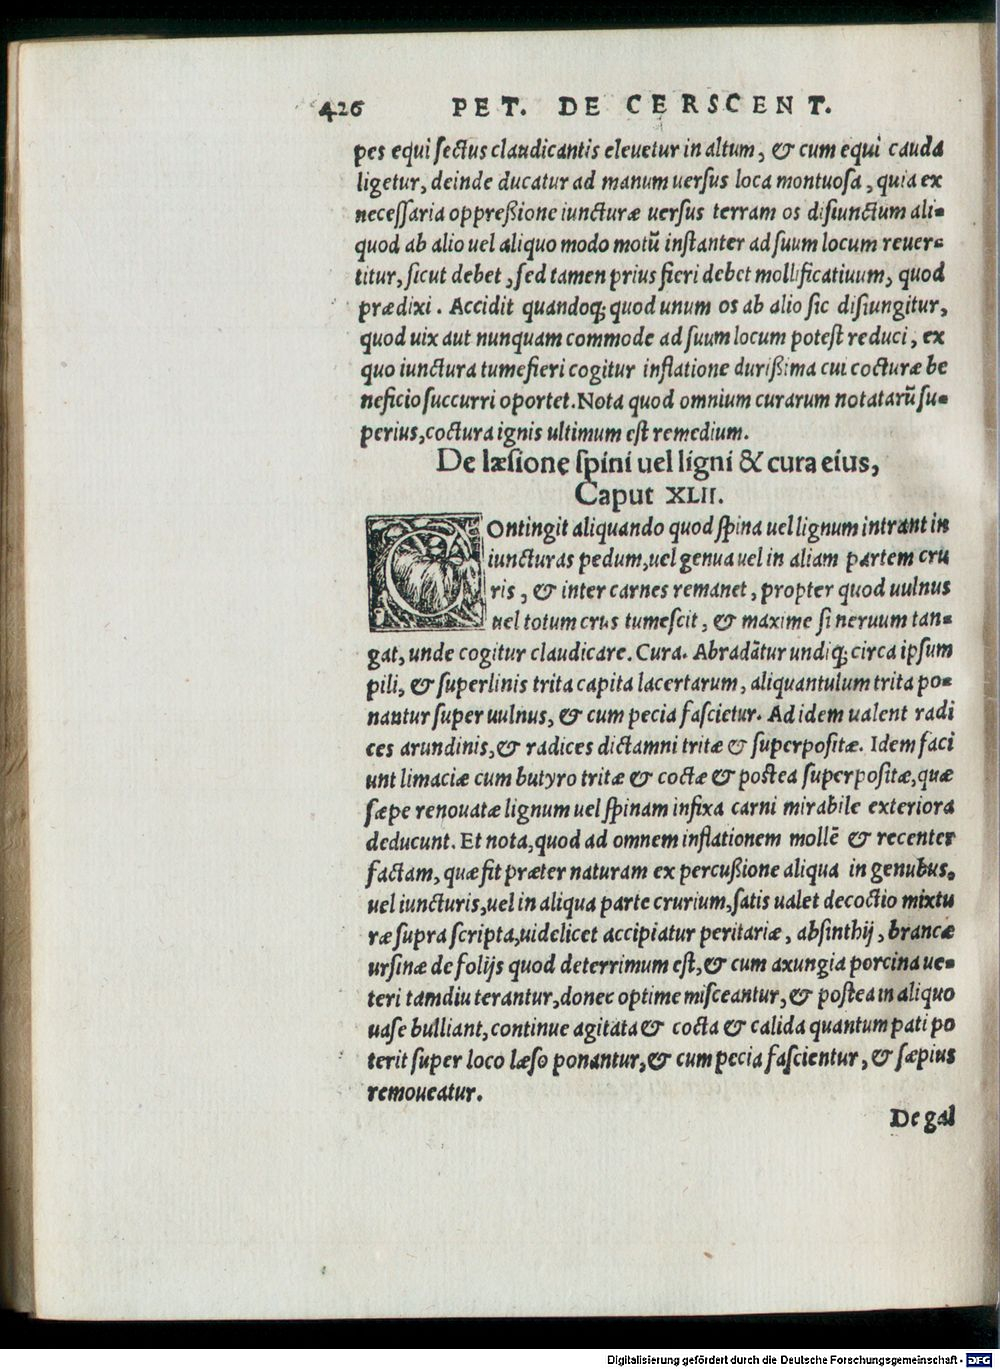 426 PET. DE CERSCENT.
pes equi sectus claudicantis eleuetur in altum, & cum equi cauda
ligetur, deinde ducatur ad manum uersus loca montuosa, quia ex
necessaria oppreßione iuncturæ uersus terram os disiunctum ali-
quod ab alio uel aliquo modo motū instanter ad suum locum reuer-
titur, sicut debet, sed tamen prius fieri debet mollificatiuum, quod
prædixi. Accidit quandoq; quod unum os ab alio sic disiungitur,
quod uix aut nunquam commode ad suum locum potest reduci, ex
quo iunctura tumefieri cogitur inflatione durißima cui cocturæ be
neficio succurri oportet. Nota quod omnium curarum notatarū su-
perius, coctura ignis ultimum est remedium.
De læsione spini uel ligni & cura eius,
Caput XLII.
COntingit aliquando quod spina uel lignum intrant in
iuncturas pedum, uel genua uel in aliam partem cru
ris, & inter carnes remanet, propter quod uulnus
uel totum crus tumescit, & maxime si neruum tan-
gat, unde cogitur claudicare. Cura. Abradātur undiq; circa ipsum
pili, & superlinis trita capita lacertarum, aliquantulum trita po-
nantur super uulnus, & cum pecia fascietur. Ad idem ualent radi
ces arundinis, & radices dictamni tritæ & superpositæ. Idem faci
unt limaciæ cum butyro tritæ & coctæ & postea superpositæ, quæ
sæpe renouatæ lignum uel spinam infixa carni mirabile exteriora
deducunt. Et nota, quod ad omnem inflationem mollē & recenter
factam, quæ fit præter naturam ex percußione aliqua in genubus,
uel iuncturis, uel in aliqua parte crurium, satis ualet decoctio mixtu
ræ supra scripta, uidelicet accipiatur peritariæ, absinthij, brancæ
ursinæ de folijs quod deterrimum est, & cum axungia porcina ue-
teri tamdiu terantur, donec optime misceantur, & postea in aliquo
uase bulliant, continue agitata & cocta & calida quantum pati po
terit super loco læso ponantur, & cum pecia fascientur, & sæpius
remoueatur.
De gal
Digitalisierung gefördert durch die Deutsche Forschungsgemeinschaft - DFG